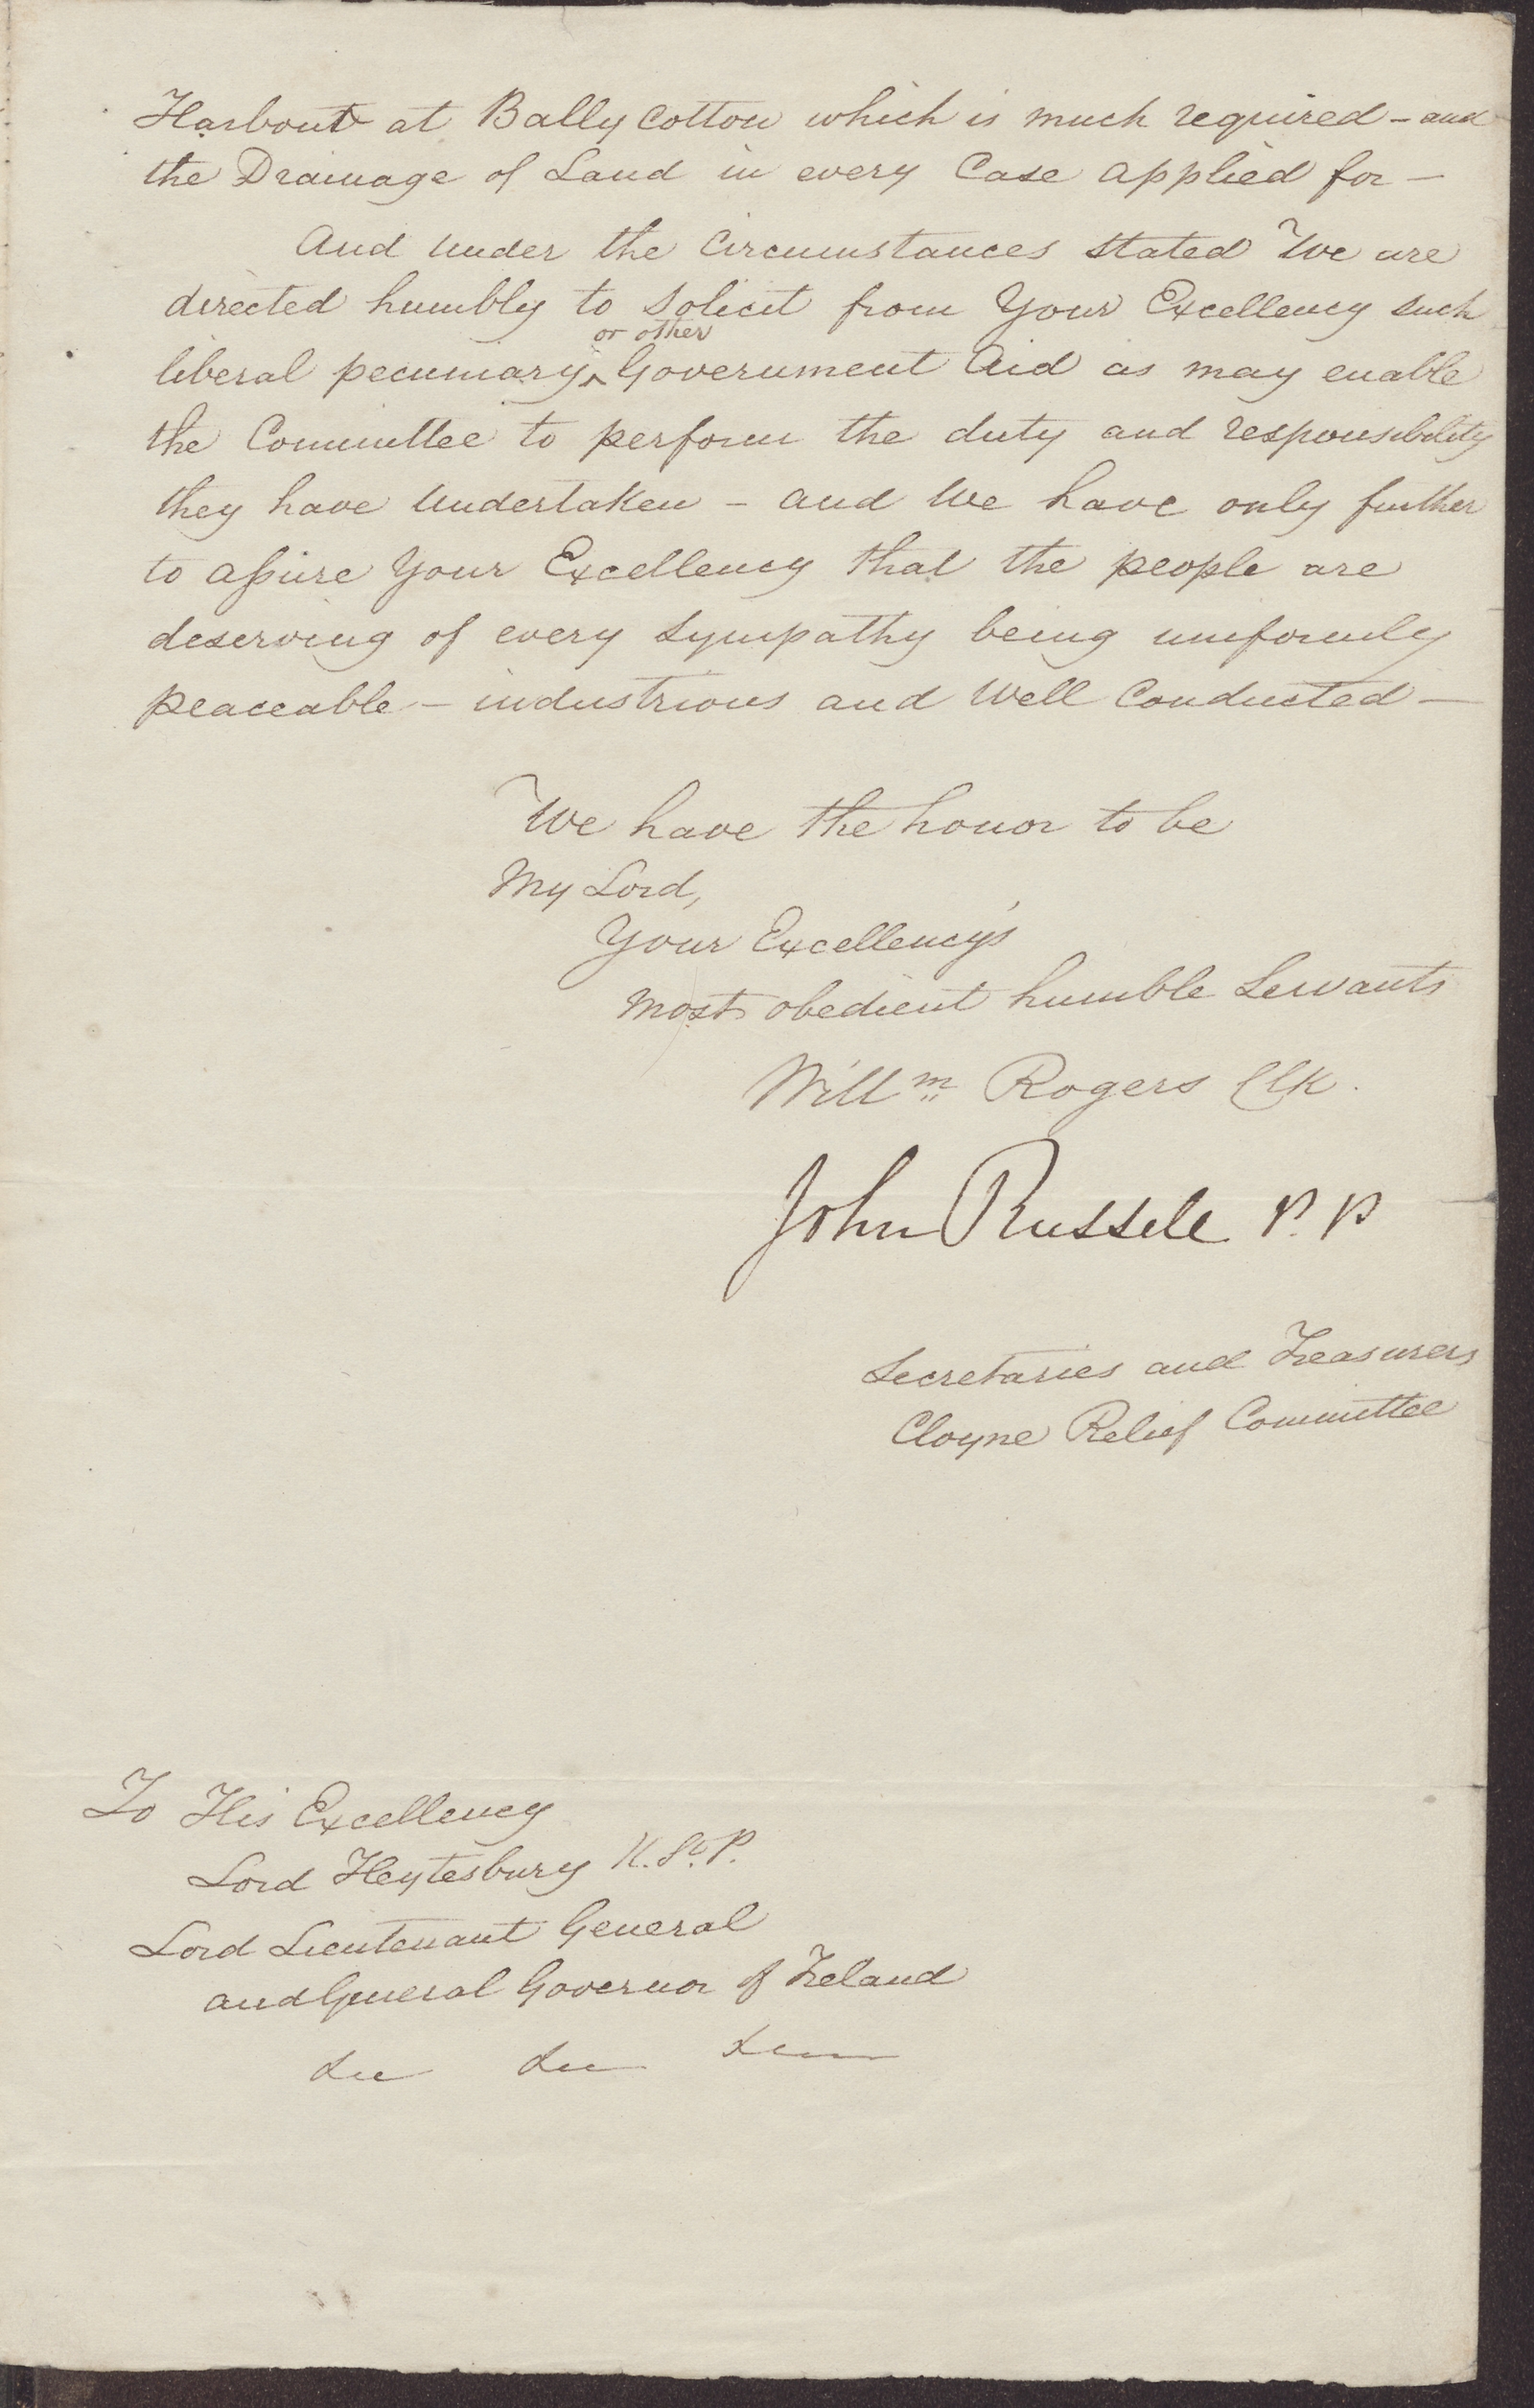 Harbour at Bally Cotton which is much required - and
the Drainage of Land in every Case applied for -
And under the Circumstances stated We are
directed humbly to Solicit from Your Excellency such
or other
liberal pecuniary ‸ Government Aid as may enable
the Committee to perform the duty and responsibility
they have Undertaken - and We have only further
to aſsure Your Excellency that the people are
deserving of every Sympathy being uniformly
peaceable - industrious and Well Conducted -
We have the honor to be
My Lord,
Your Excellency's
Most obedient humble Servants
Willm Rogers Clk.
John Russell P. P
Secretaries and Treasurers
Cloyne Relief Committee
To His Excellency
Lord Heytesbury K. St. P.
Lord Lieutenant General
and General Governor of Ireland
&c &c &c